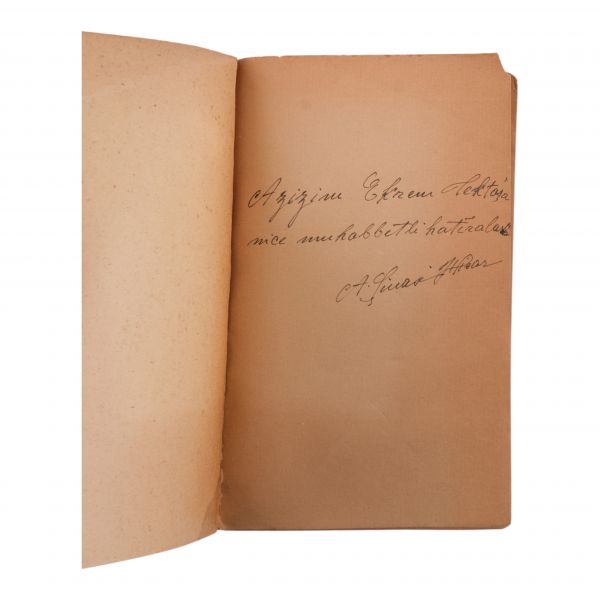 Azizim Ekrem Tektaş'a
nice muhabbetli hatıralarla
A. Şinasi Hisar